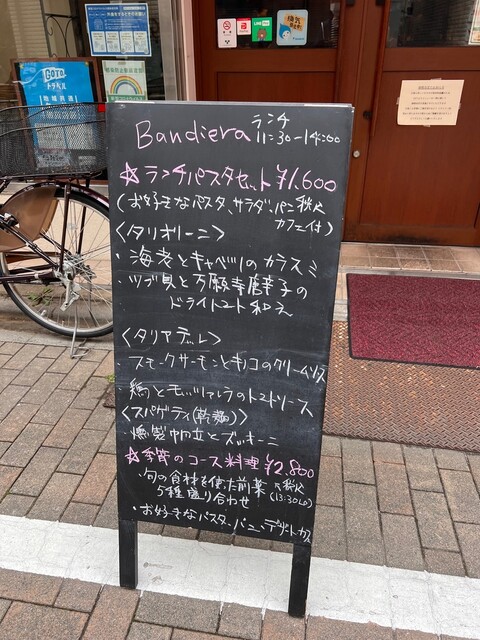 Bandiera ランチ
11:30-14:00
☆ランチパスタセット ¥1.600
(お好きなパスタ、サラダ、パン 税込
カフェ付)
〈タリオリーニ〉
・海老とキャベツのカラスミ
・ツブ貝と万願寺唐辛子の
ドライトマト和え
〈タリアテレ〉
・スモークサーモンとキノコのクリームソース
・鶏とモッツァレラのトマトソース
〈スパゲティ(乾麺)〉
・燻製帆立とズッキーニ
☆季節のコース料理 ¥2.800
・旬の食材を使った前菜 税込
5種盛り合わせ (13:30LO)
・お好きなパスタ、パン、デザート、カフェ
GOTO
トラベル